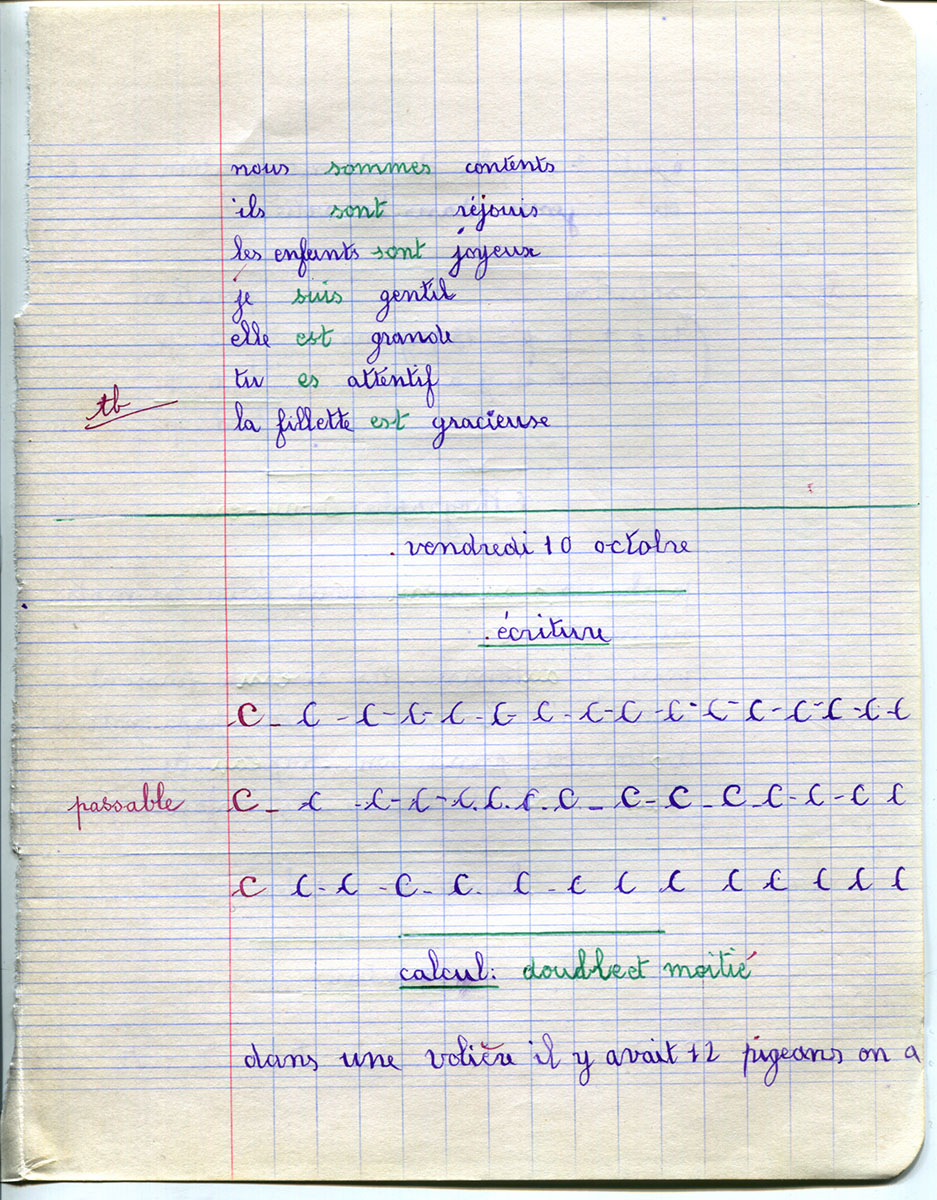 nous sommes contents
ils sont réjouis
les enfants sont joyeux
je suis gentil
elle est grande
tu es attentif
tb
la fillette est gracieuse
vendredi 10 octobre
écriture
C - C - C - C - C - C - C - C - C - C - C - C - C - C - C - C
passable
C - C - C - C - C. C. C. C - C - C - C - C - C - C C
C C - C - C - C. C - C C C C C C C C
calcul: double et moitié
dans une volière il y avait 12 pigeons on a